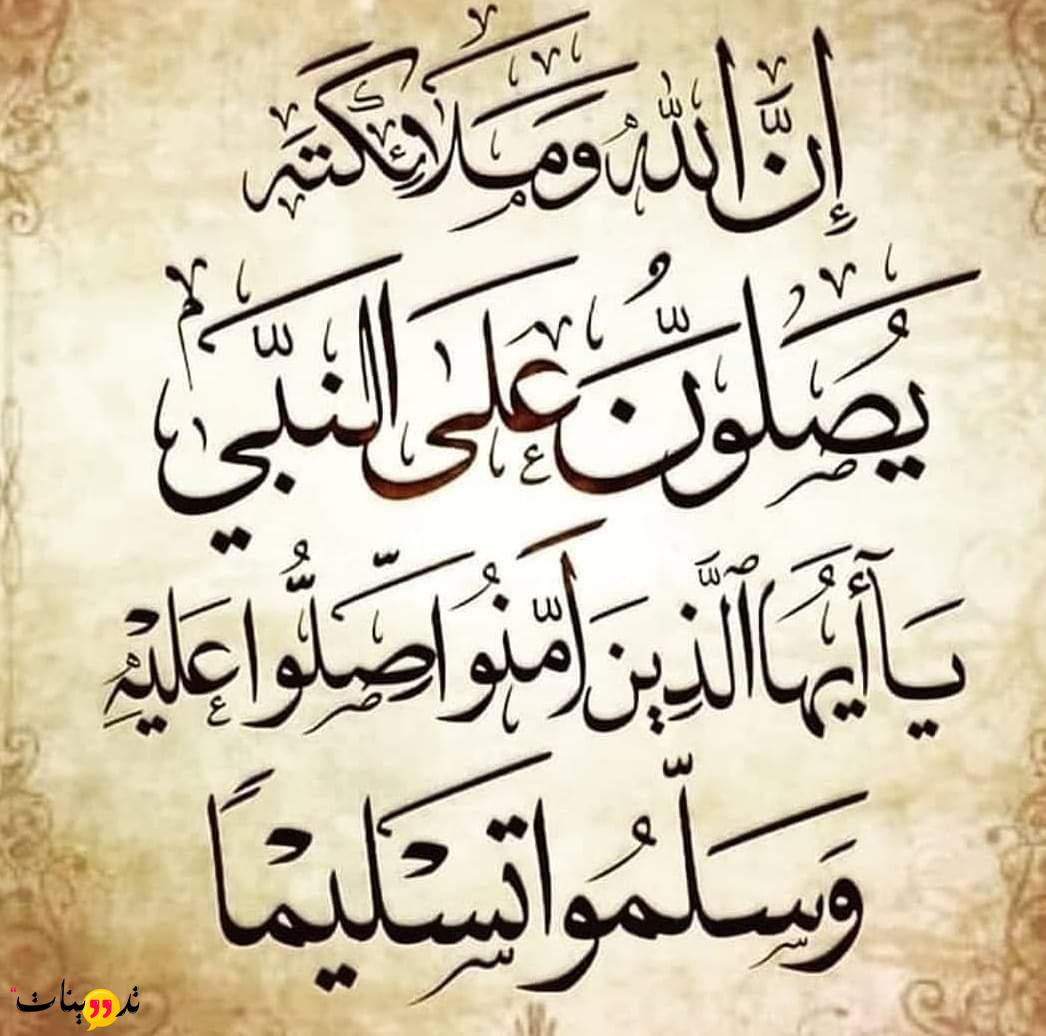 إِنَّ اللَّهَ وَمَلَائِكَتَهُ
يُصَلُّونَ عَلَى النَّبِيِّ
يَا أَيُّهَا ٱلَّذِينَ آمَنُوا صَلُّوا عَلَيْهِ
وَسَلِّمُوا تَسْلِيمًا
تدوينات